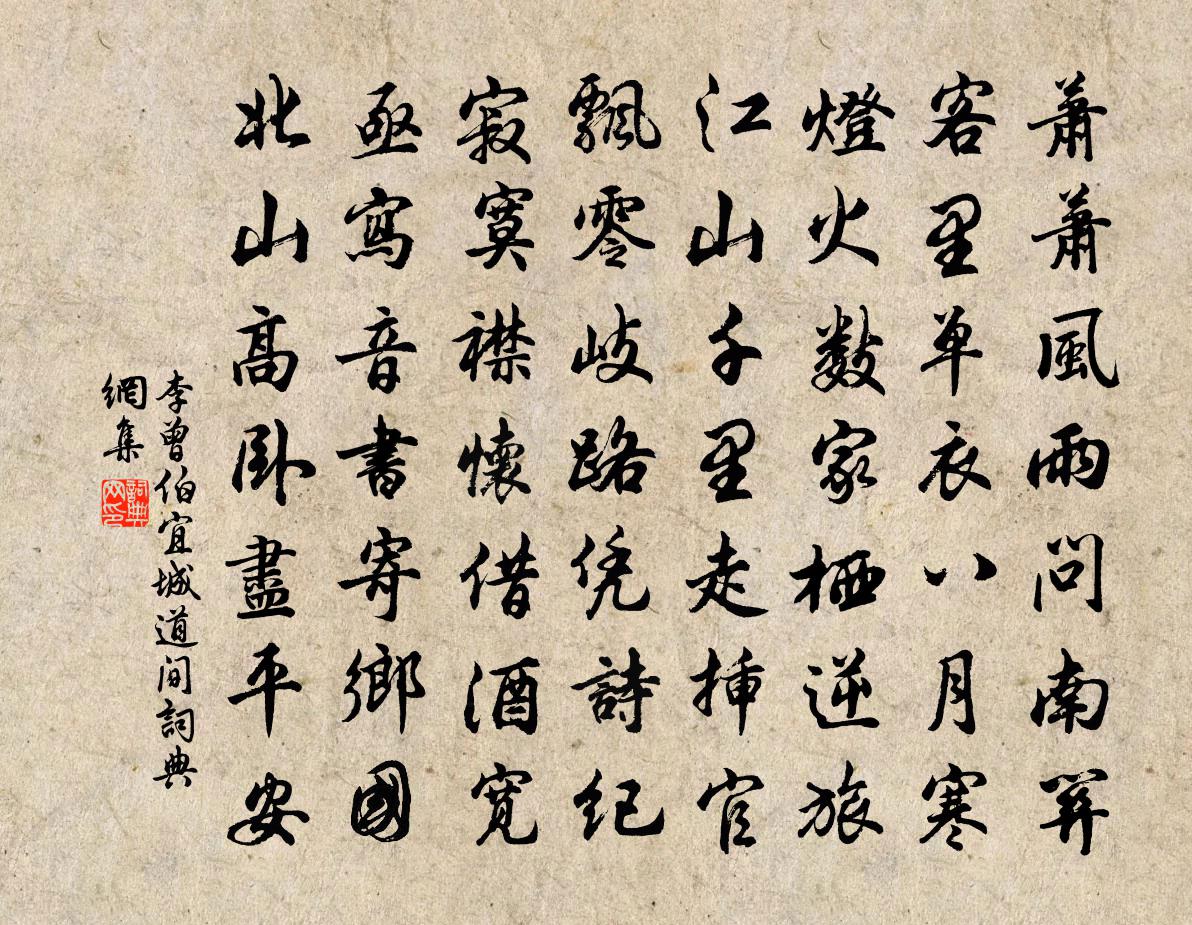 蕭蕭風雨問南關
客里單衣八月寒
燈火數家栖逆旅
江山千里走插官
飄零歧路凭詩紀
寂寞襟懷借酒寬
亟寫音書寄鄉國
北山高卧盡平安
李曾伯宜城道間詞典
網集
詞典
网印